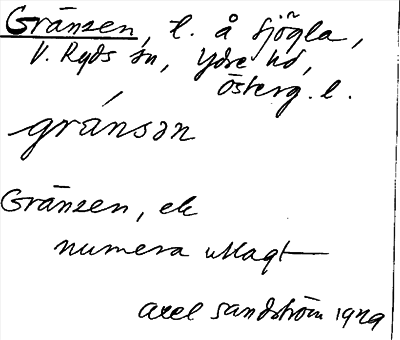 Gränsen, t. å Sjögla,
V. Ryds sn, Ydre hd,
Österg. l.
gránsən
Gränsen, ek
numera utlagt
Axel Sandström 1929